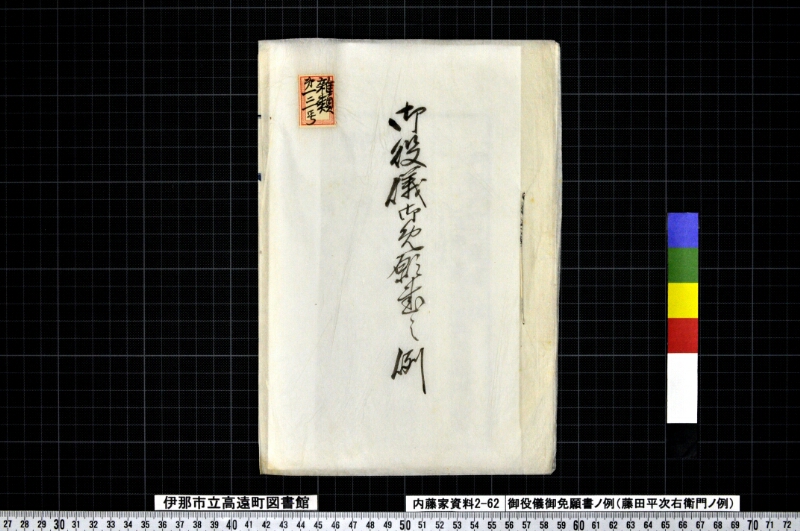 雜類
第一二一号
御役儀御免願書之例
伊那市立高遠町図書館
内藤家資料2-62
御役儀御免願書ノ例(藤田平次右衛門ノ例)
27 28 29 30 31 32 33 34 35 36 37 38 39 40 41 42 43 44 45 46 47 48 49 50 51 52 53 54 55 56 57 58 59 60 61 62 63 64 65 66 67 68 69 70 71 72